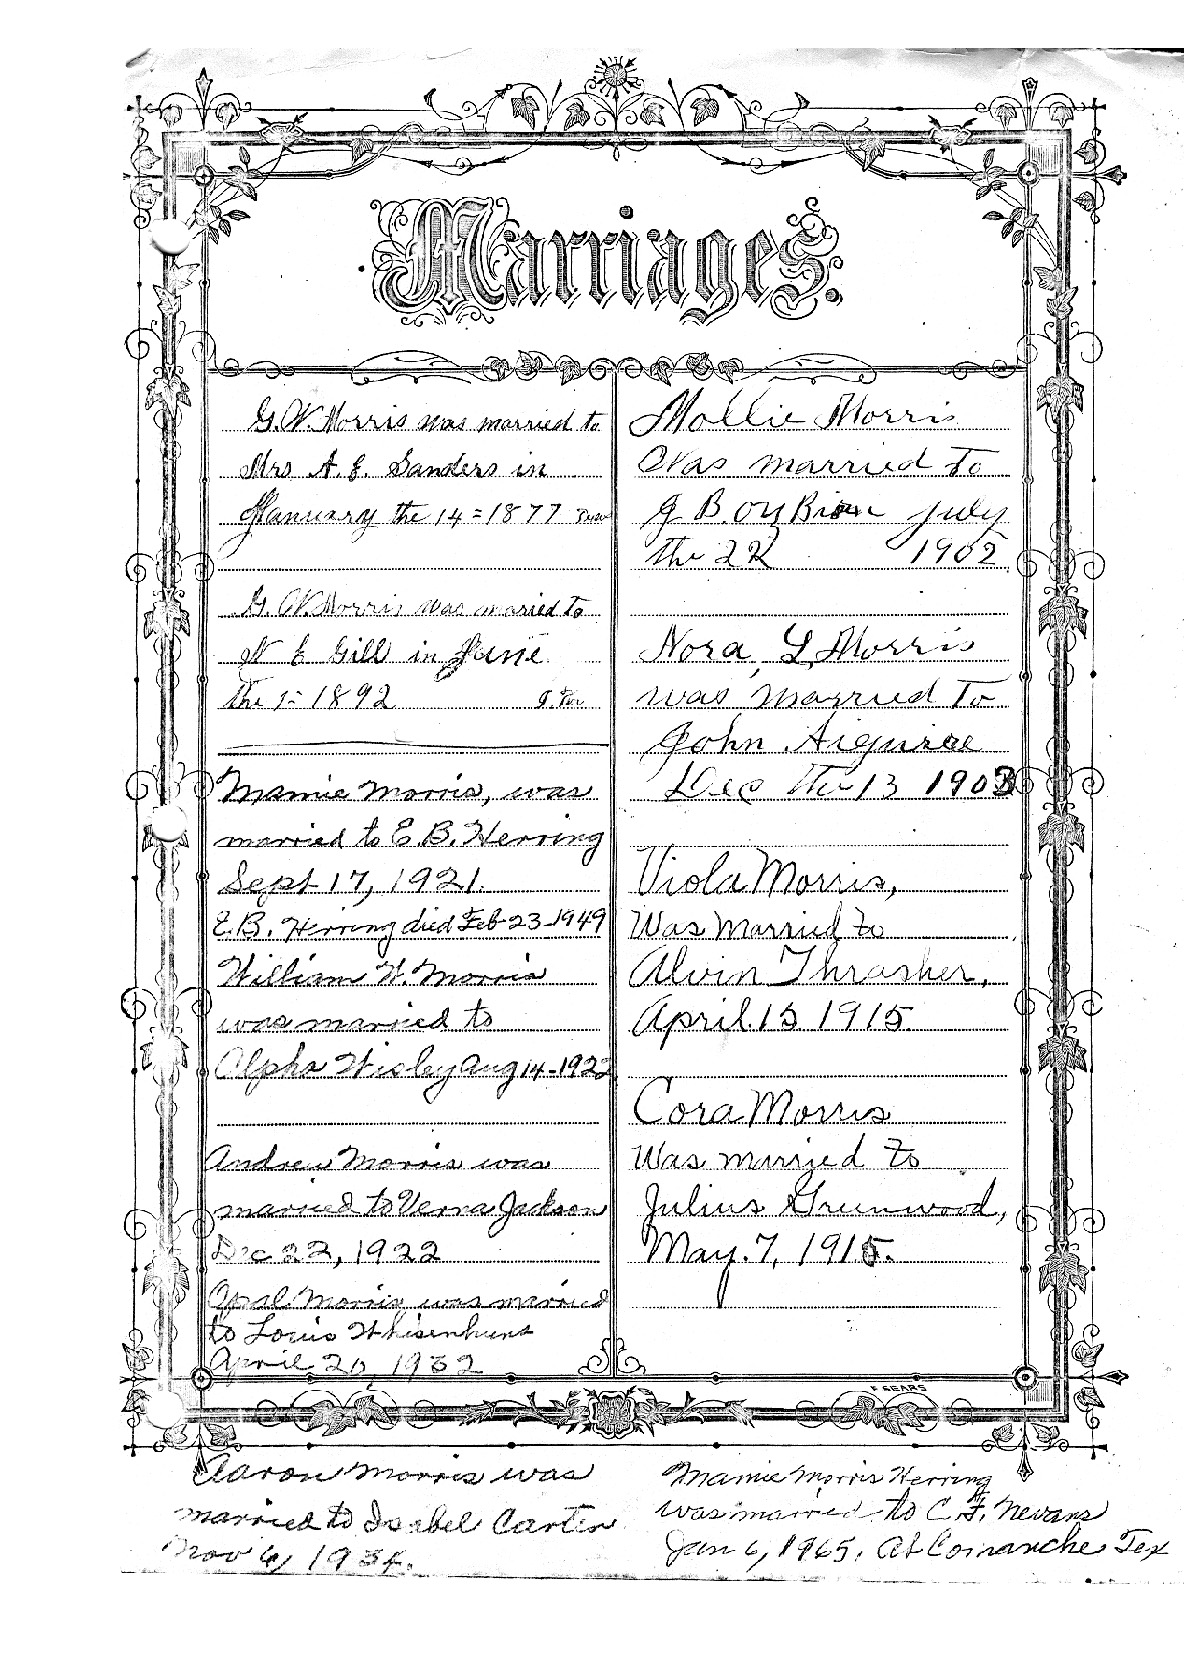 Marriages.
G. W. Morris was married to
Mrs A. E. Sanders in
January the 14 = 1877
G. W. Morris was maried to
N E Gill in June
the 1 - 1892
Mamie Morris, was
married to E. B. Herring
Sept 17, 1921.
E. B. Herring died Feb 23-1949
William W. Morris
was married to
Alpha Wisley Aug 14-1922
Andrew Morris was
married to Verna Jackson
Dec 22, 1922
Opal Morris was married
to Louis Whisenhunt
April 20, 1932
Mollie Morris
Was married to
J B. July
the 22 1902
Nora, L Morris
was married to
John
Dec the 13 1903
Viola Morris,
Was Married to
Alvin Thrasher,
April.15 1915
Cora Morris
Was married to
Julius Greenwood,
May. 7, 1915.
F SEARS
Aaron Morris was
married to Isabel Carter
Nov 6, 1934.
Mamie Morris Herring
was married to C. F. Nevans
Jan 6, 1965. At Comanche Tex